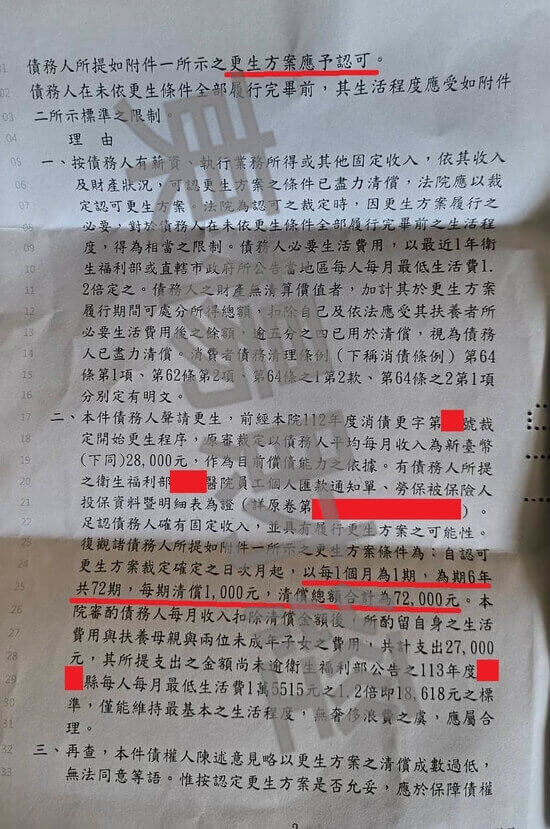 01 債務人所提如附件一所示之更生方案應予認可。
02 債務人在未依更生條件全部履行完畢前,其生活程度應受如附件
03 二所示標準之限制。
04 理 由
05 一、按債務人有薪資、執行業務所得或其他固定收入,依其收入
06 及財產狀況,可認更生方案之條件已盡力清償,法院應以裁
07 定認可更生方案。法院為認可之裁定時,因更生方案履行之
08 必要,對於債務人在未依更生條件全部履行完畢前之生活程
09 度,得為相當之限制。債務人必要生活費用,以最近1年衛
10 生福利部或直轄市政府所公告當地區每人每月最低生活費1.
11 2倍定之。債務人之財產無清算價值者,加計其於更生方案
12 履行期間可處分所得總額,扣除自己及依法應受其扶養者所
13 必要生活費用後之餘額,逾五分之四已用於清償,視為債務
14 人已盡力清償。消費者債務清理條例(下稱消債條例)第64
15 條第1項、第62條第2項、第64條之1第2款、第64條之2第1項
16 分別定有明文。
17 二、本件債務人聲請更生,前經本院112年度消債更字第 號裁
18 定開始更生程序,原審裁定以債務人平均每月收入為新臺幣
19 (下同)28,000元,作為目前償債能力之依據。有債務人所提
20 之衛生福利部 醫院員工個人匯款通知單、勞保被保險人
21 投保資料暨明細表為證(詳原卷第 )。
22 足認債務人確有固定收入,並具有履行更生方案之可能性。
23 復觀諸債務人所提如附件一所示之更生方案條件為:自認可
24 更生方案裁定確定之日次月起,以每1個月為1期,為期6年
25 共72期,每期清償1,000元,清償總額合計為72,000元。本
26 院審酌債務人每月收入扣除清償金額後,所酌留自身之生活
27 費用與扶養母親與兩位未成年子女之費用,共計支出27,000
28 元,其所提支出之金額尚未逾衛生福利部公告之113年度
29 縣每人每月最低生活費1萬5515元之1.2倍即18,618元之標
30 準,僅能維持最基本之生活程度,無奢侈浪費之虞,應屬合
31 理。
32 三、再查,本件債權人陳述意見略以更生方案之清償成數過低,
33 無法同意等語。惟按認定更生方案是否允妥,應於保障債權
2